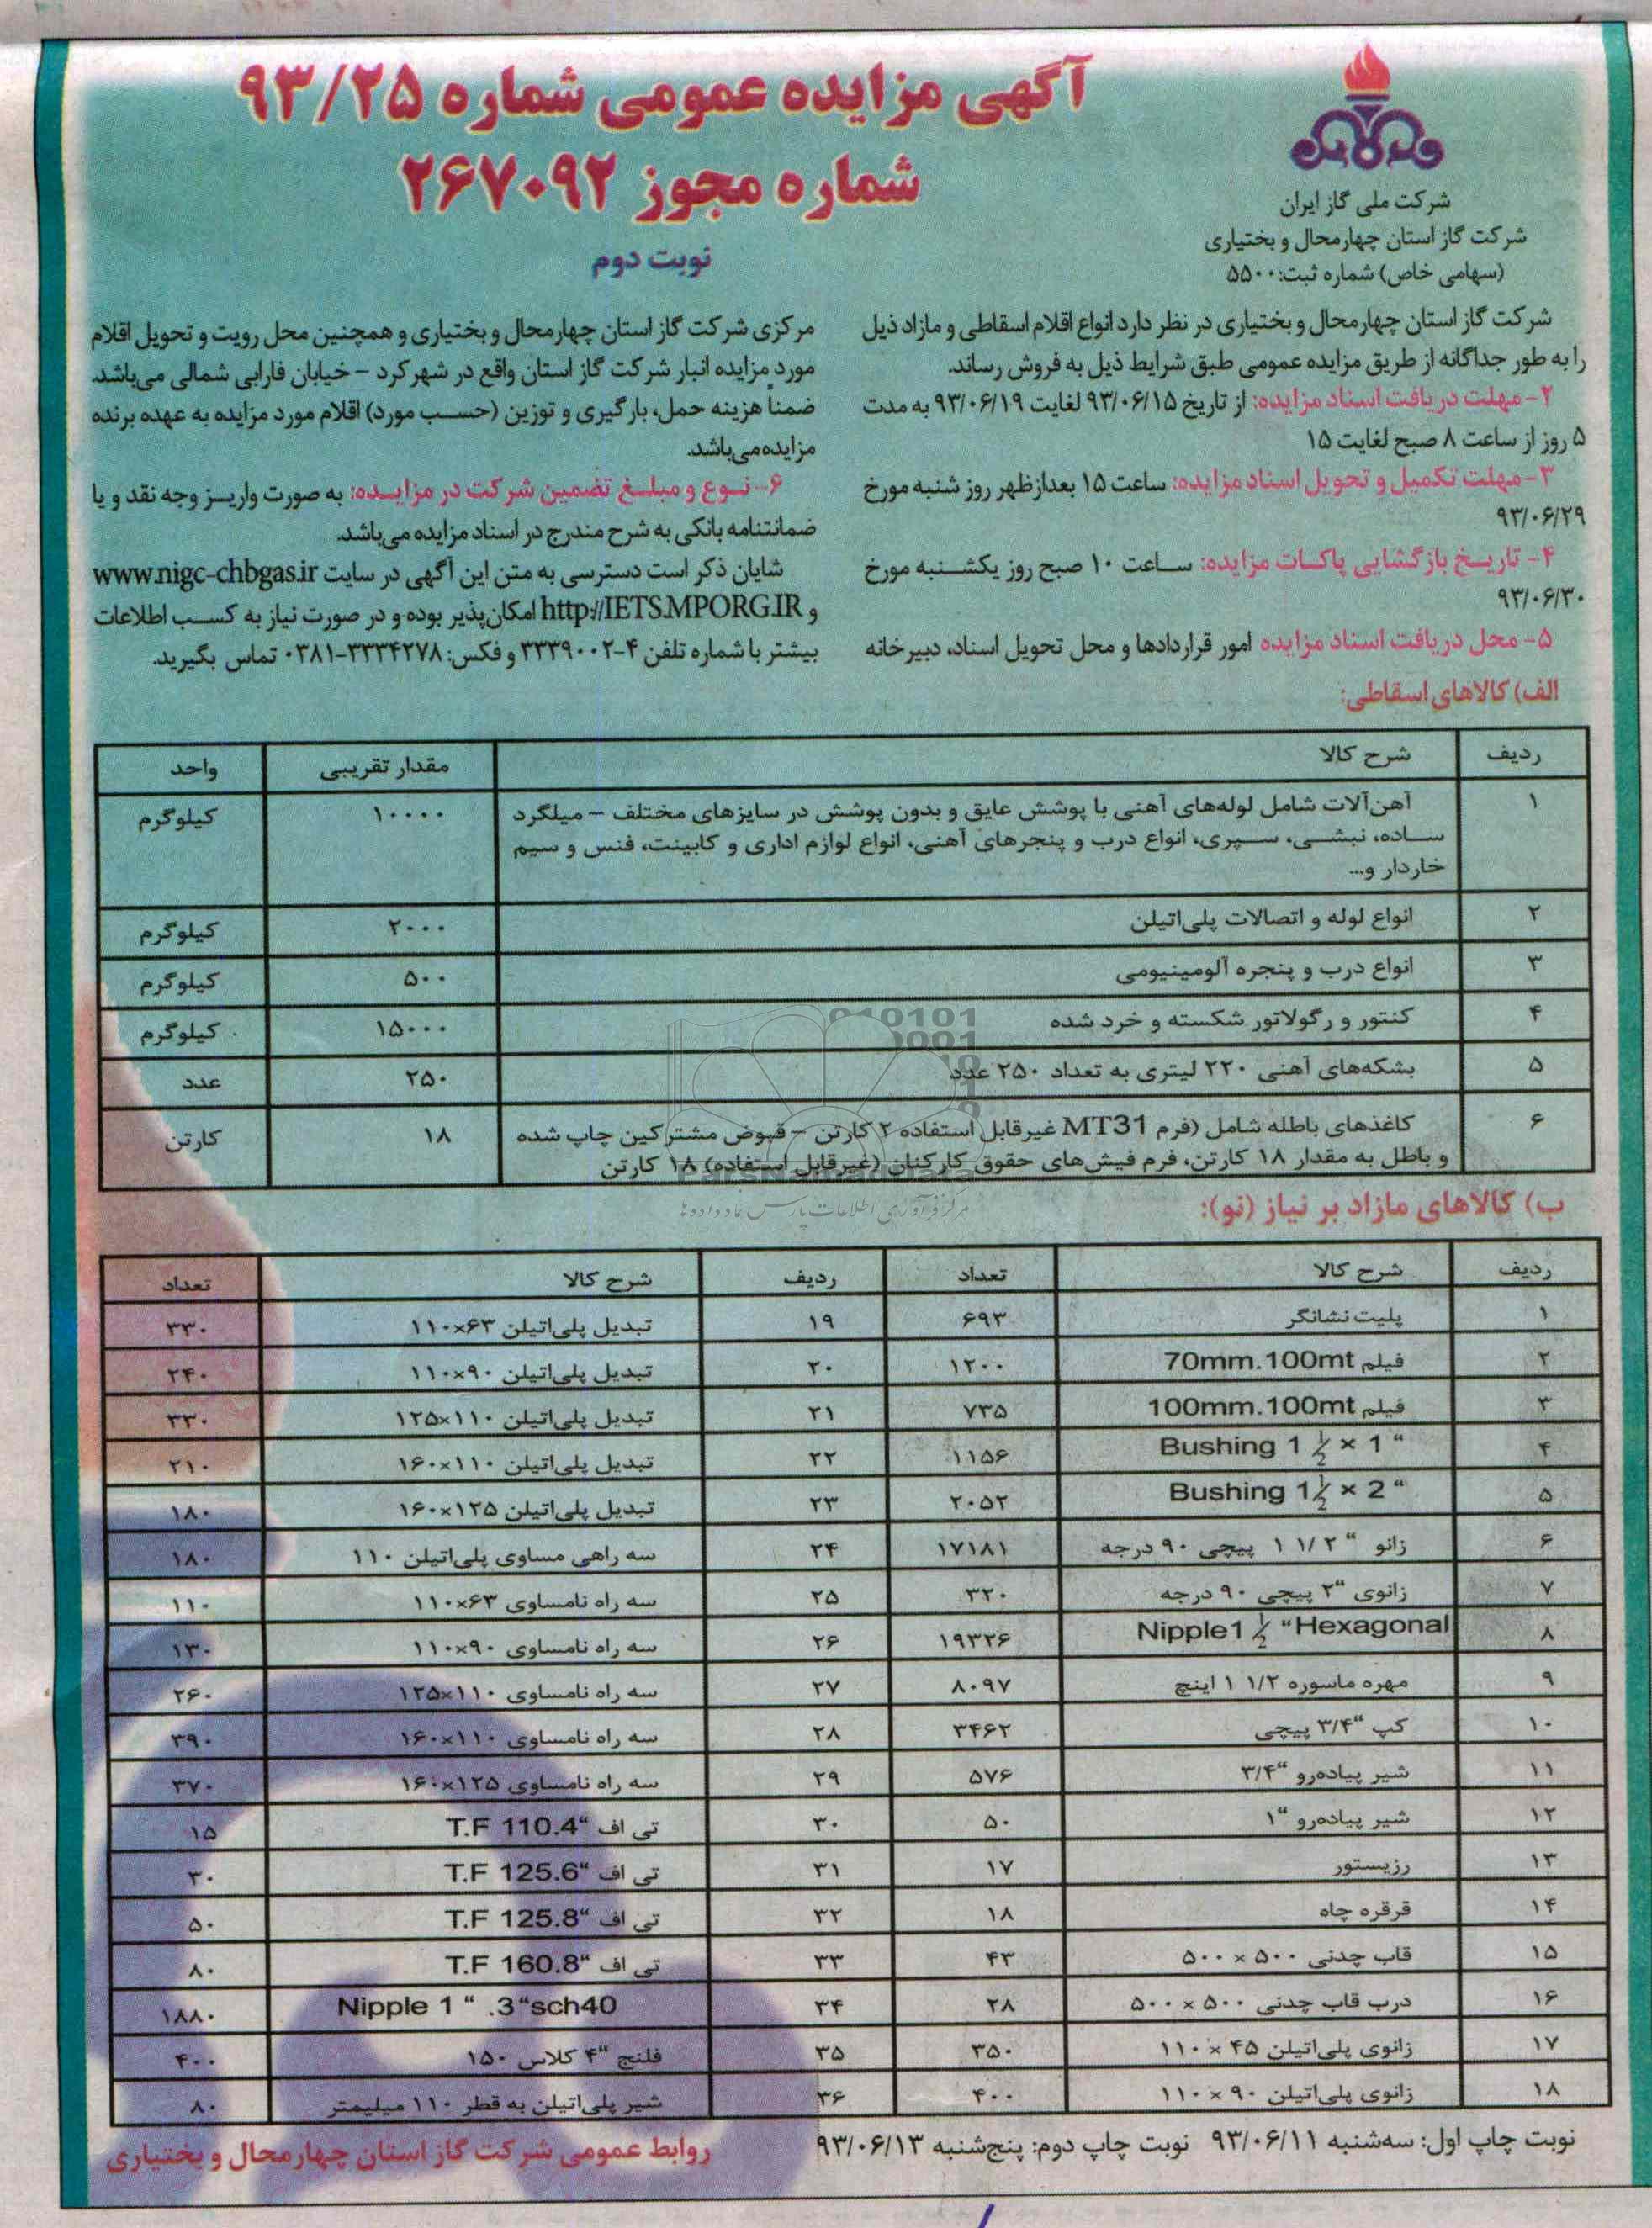 آگهی مزایده عمومی شماره ۹۳/۲۵
شماره مجوز ۲۶۷۰۹۲
نوبت دوم
شرکت ملی گاز ایران
شرکت گاز استان چهارمحال و بختیاری
(سهامی خاص) شماره ثبت: ۵۵۰۰
شرکت گاز استان چهارمحال و بختیاری در نظر دارد انواع اقلام اسقاطی و مازاد ذیل
را به طور جداگانه از طریق مزایده عمومی طبق شرایط ذیل به فروش رساند.
۲- مهلت دریافت اسناد مزایده: از تاریخ ۹۳/۰۶/۱۵ لغایت ۹۳/۰۶/۱۹ به مدت
۵ روز از ساعت ۸ صبح لغایت ۱۵
۳- مهلت تکمیل و تحویل اسناد مزایده: ساعت ۱۵ بعدازظهر روز شنبه مورخ
۹۳/۰۶/۲۹
۴- تاریخ بازگشایی پاکات مزایده: ساعت ۱۰ صبح روز یکشنبه مورخ
۹۳/۰۶/۳۰
۵- محل دریافت اسناد مزایده امور قراردادها و محل تحویل اسناد، دبیرخانه
مرکزی شرکت گاز استان چهارمحال و بختیاری و همچنین محل رویت و تحویل اقلام
مورد مزایده انبار شرکت گاز استان واقع در شهرکرد – خیابان فارابی شمالی می‌باشد.
ضمناً هزینه حمل، بارگیری و توزین (حسب مورد) اقلام مورد مزایده به عهده برنده
مزایده می‌باشد.
۶- نوع و مبلغ تضمین شرکت در مزایده: به صورت واریز وجه نقد و یا
ضمانتنامه بانکی به شرح مندرج در اسناد مزایده می‌باشد.
شایان ذکر است دسترسی به متن این آگهی در سایت www.nigc-chbgas.ir
و http://IETS.MPORG.IR امکان‌پذیر بوده و در صورت نیاز به کسب اطلاعات
بیشتر با شماره تلفن ۴-۳۳۳۹۰۰۲ و فکس: ۳۳۳۴۲۷۸-۰۳۸۱ تماس بگیرید.
الف) کالاهای اسقاطی:
ردیف شرح کالا مقدار تقریبی واحد
۱ آهن‌آلات شامل لوله‌های آهنی با پوشش عایق و بدون پوشش در سایزهای مختلف – میلگرد ۱۰۰۰۰ کیلوگرم
ساده، نبشی، سپری، انواع درب و پنجرهای آهنی، انواع لوازم اداری و کابینت، فنس و سیم
خاردار و...
۲ انواع لوله و اتصالات پلی‌اتیلن ۲۰۰۰ کیلوگرم
۳ انواع درب و پنجره آلومینیومی ۵۰۰ کیلوگرم
۴ کنتور و رگولاتور شکسته و خرد شده ۱۵۰۰۰ کیلوگرم
۵ بشکه‌های آهنی ۲۲۰ لیتری به تعداد ۲۵۰ عدد ۲۵۰ عدد
۶ کاغذهای باطله شامل (فرم MT31 غیرقابل استفاده ۲ کارتن – قبوض مشترکین چاپ شده ۱۸ کارتن
و باطل به مقدار ۱۸ کارتن، فرم فیش‌های حقوق کارکنان (غیرقابل استفاده) ۱۸ کارتن
ParsNamadData
مرکز فرآوری اطلاعات پارس نماد داده ها
ب) کالاهای مازاد بر نیاز (نو):
ردیف شرح کالا تعداد ردیف شرح کالا تعداد
۱ پلیت نشانگر ۶۹۳ ۱۹ تبدیل پلی‌اتیلن ۶۳×۱۱۰ ۳۳۰
۲ فیلم 70mm.100mt ۱۲۰۰ ۲۰ تبدیل پلی‌اتیلن ۹۰×۱۱۰ ۲۴۰
۳ فیلم 100mm.100mt ۷۳۵ ۲۱ تبدیل پلی‌اتیلن ۱۱۰×۱۲۵ ۳۳۰
۴ Bushing 1 ½ × 1 “ ۱۱۵۶ ۲۲ تبدیل پلی‌اتیلن ۱۱۰×۱۶۰ ۲۱۰
۵ Bushing 1½ × 2 “ ۲۰۵۲ ۲۳ تبدیل پلی‌اتیلن ۱۲۵×۱۶۰ ۱۸۰
۶ زانو “ ۱/۲ ۱ پیچی ۹۰ درجه ۱۷۱۸۱ ۲۴ سه راهی مساوی پلی‌اتیلن ۱۱۰ ۱۸۰
۷ زانوی “۲ پیچی ۹۰ درجه ۳۲۰ ۲۵ سه راه نامساوی ۶۳×۱۱۰ ۱۱۰
۸ Nipple1 ½ “Hexagonal ۱۹۳۲۶ ۲۶ سه راه نامساوی ۹۰×۱۱۰ ۱۳۰
۹ مهره ماسوره ۱/۲ ۱ اینچ ۸۰۹۷ ۲۷ سه راه نامساوی ۱۱۰×۱۲۵ ۲۶۰
۱۰ کپ “۳/۴ پیچی ۳۴۶۲ ۲۸ سه راه نامساوی ۱۱۰×۱۶۰ ۳۹۰
۱۱ شیر پیاده‌رو “۳/۴ ۵۷۶ ۲۹ سه راه نامساوی ۱۲۵×۱۶۰ ۳۷۰
۱۲ شیر پیاده‌رو “۱ ۵۰ ۳۰ تی اف “T.F 110.4 ۱۵
۱۳ رزیستور ۱۷ ۳۱ تی اف “T.F 125.6 ۳۰
۱۴ قرقره چاه ۱۸ ۳۲ تی اف “T.F 125.8 ۵۰
۱۵ قاب چدنی ۵۰۰ × ۵۰۰ ۴۳ ۳۳ تی اف “T.F 160.8 ۸۰
۱۶ درب قاب چدنی ۵۰۰ × ۵۰۰ ۲۸ ۳۴ Nipple 1 “ .3“sch40 ۱۸۸۰
۱۷ زانوی پلی‌اتیلن ۴۵ × ۱۱۰ ۳۵۰ ۳۵ فلنج “۴ کلاس ۱۵۰ ۴۰۰
۱۸ زانوی پلی‌اتیلن ۹۰ × ۱۱۰ ۴۰۰ ۳۶ شیر پلی‌اتیلن به قطر ۱۱۰ میلیمتر ۸۰
نوبت چاپ اول: سه‌شنبه ۹۳/۰۶/۱۱ نوبت چاپ دوم: پنج‌شنبه ۹۳/۰۶/۱۳
روابط عمومی شرکت گاز استان چهارمحال و بختیاری